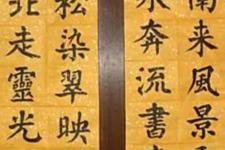 南来風景
奔流書
松染翠映
北走靈光